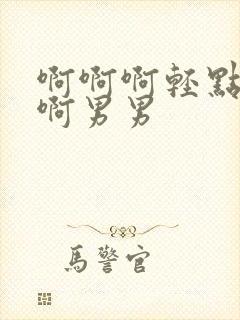 啊啊啊輕點
啊男男
馬警官